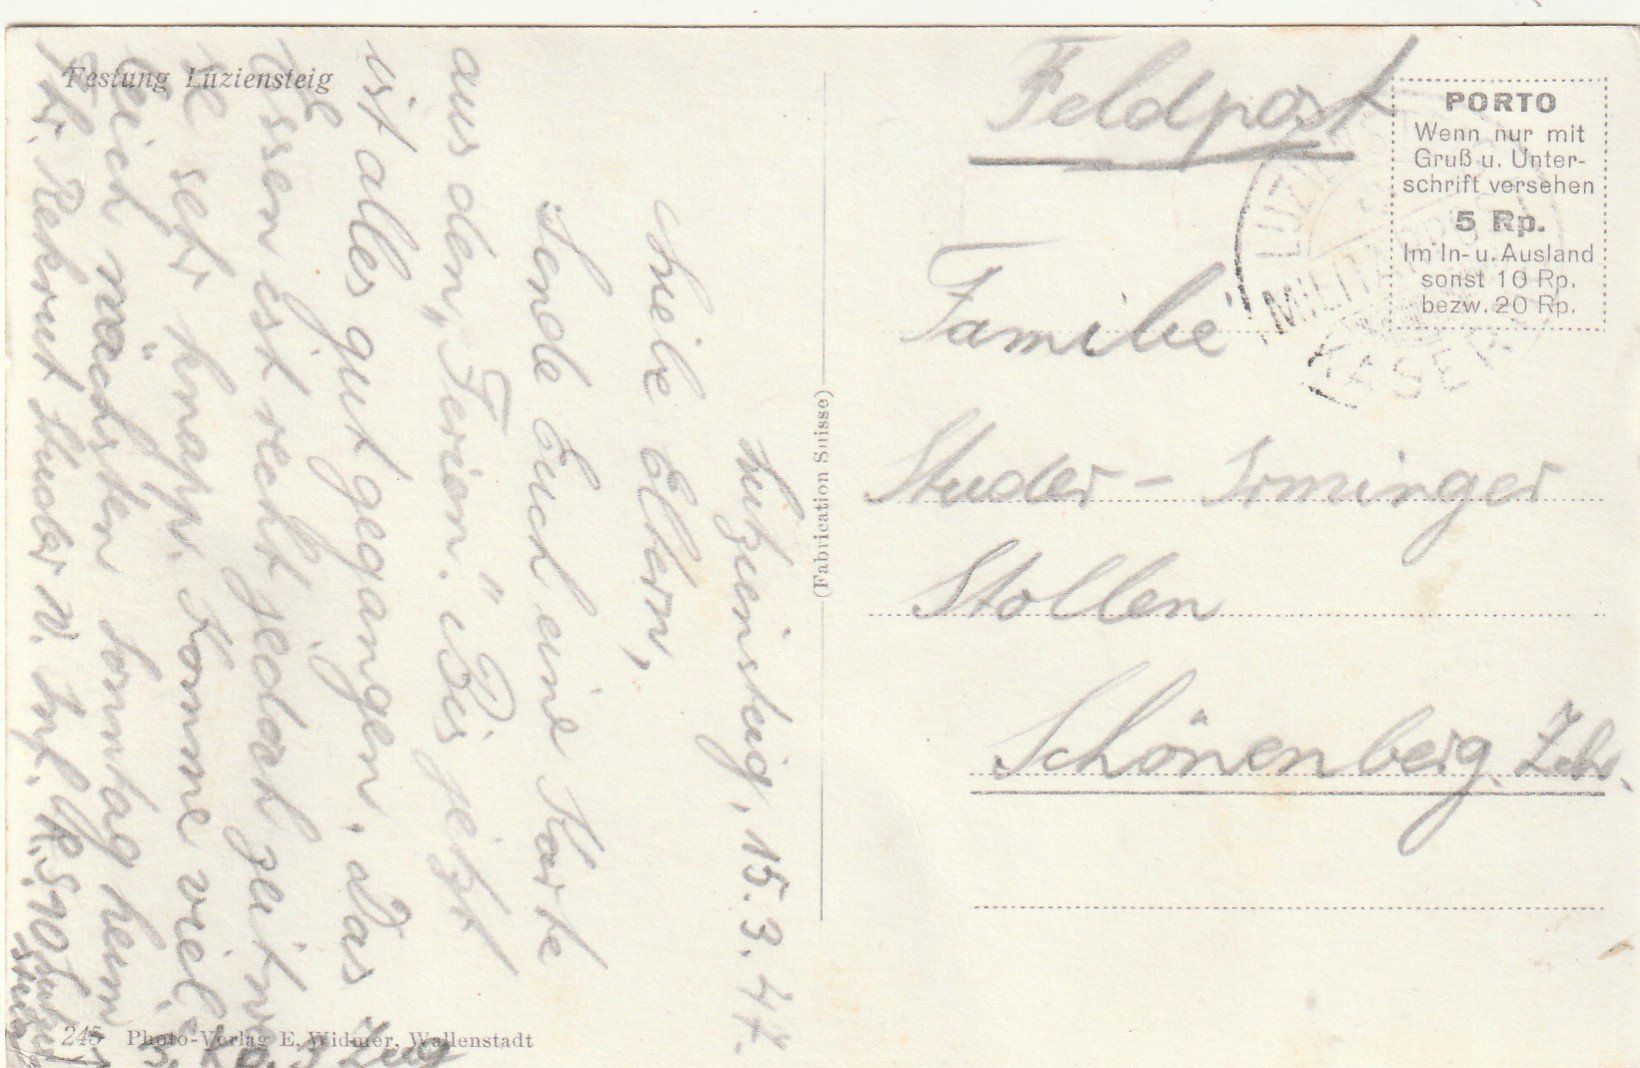 Festung Luziensteig
Luziensteig, 15. 3. 47.
Liebe Eltern,
Sende Euch eine Karte
aus den „Ferien". Bis jetzt
ist alles gut gegangen. Das
Essen ist recht jedoch zeitwei-
se sehr knapp. Komme viel
leicht nächsten Sonntag heim
Rekrut Studer W. Inf. R.S. 10
3. 3. Zug
245 Photo-Verlag E. Widmer, Wallenstadt
(Fabrication Suisse)
Feldpost
PORTO
Wenn nur mit
Gruß u. Unter-
schrift versehen
5 Rp.
Im In- u. Ausland
sonst 10 Rp.
bezw. 20 Rp.
Familie
Studer - Irminger
Stollen
Schönenberg, Zch.